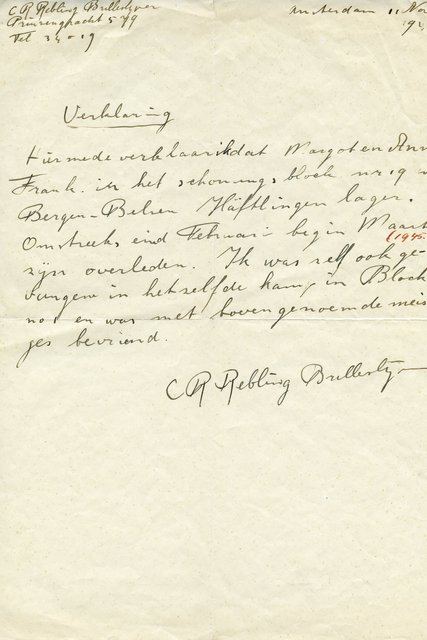 C R Rebling Brilleslyper
Amsterdam 11 Nov
Prinsengracht 579
Tel 34 - 19
Verklaring
Hiermede verklaar ik dat Margot en Ann
Frank. in het schonungs block nr 19
Bergen-Belsen Häftlingen lager.
Omstreeks eind Februari begin Maart
(1945
zijn overleden. Ik was zelf ook ge-
vangen in hetzelfde kamp in Block
no 1 en was met bovengenoemde meis
jes bevriend.
C R Rebling Brilleslyper